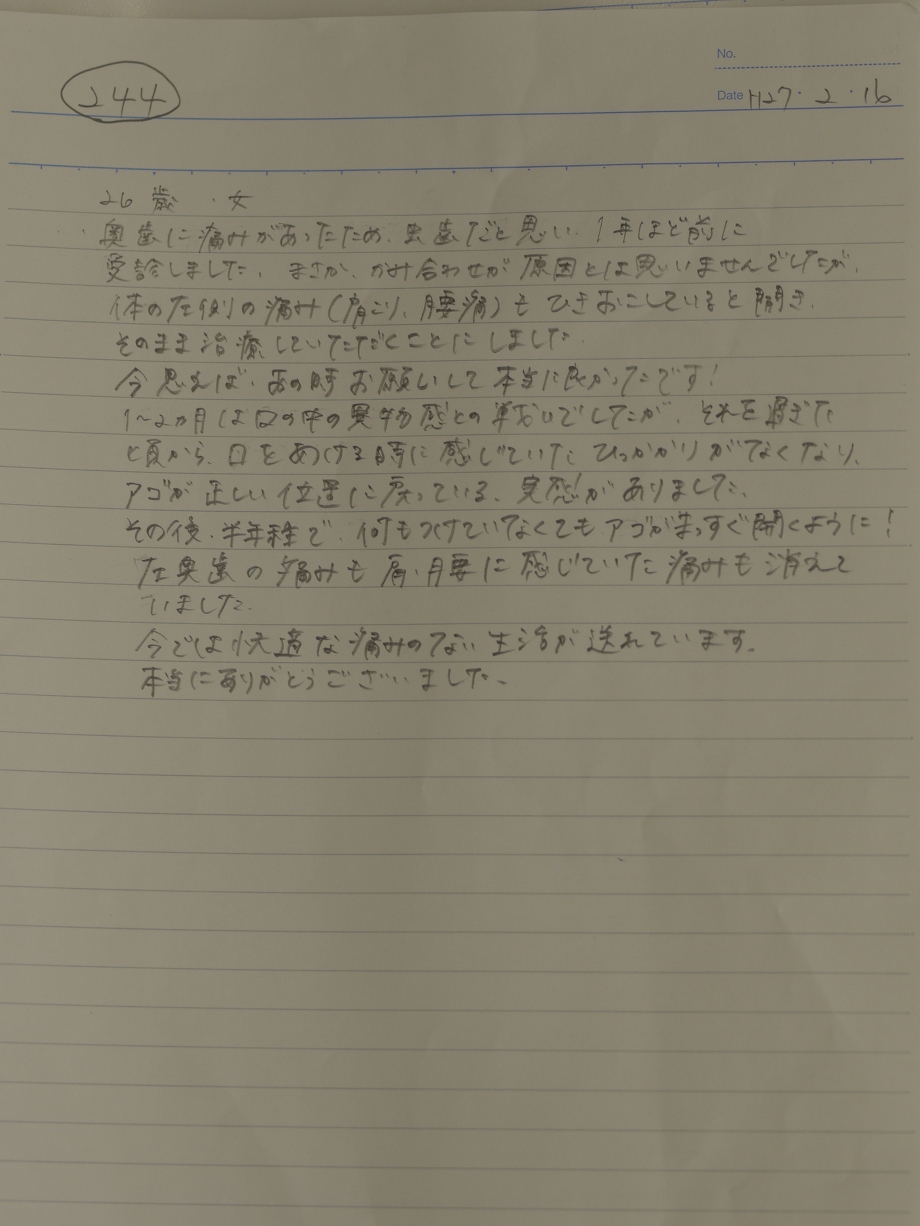 244
No.
Date H27.2.16
26歳・女
奥歯に痛みがあったため、虫歯だと思い、1年ほど前に
受診しました。まさか、かみ合わせが原因とは思いませんでしたが、
体の左側の痛み(肩こり、腰痛)もひきおこしていると聞き、
そのまま治療していただくことにしました。
今思えば、あの時お願いして本当に良かったです!
1~2ヵ月は口の中の異物感との戦いでしたが、それを過ぎた
頃から、口をあける時に感じていたひっかかりがなくなり、
アゴが正しい位置に戻っている、実感がありました。
その後、半年程で、何もつけていなくてもアゴがまっすぐ開くように!
左奥歯の痛みも肩、腰に感じていた痛みも消えて
いました。
今では快適な痛みのない生活が送れています。
本当にありがとうございました。